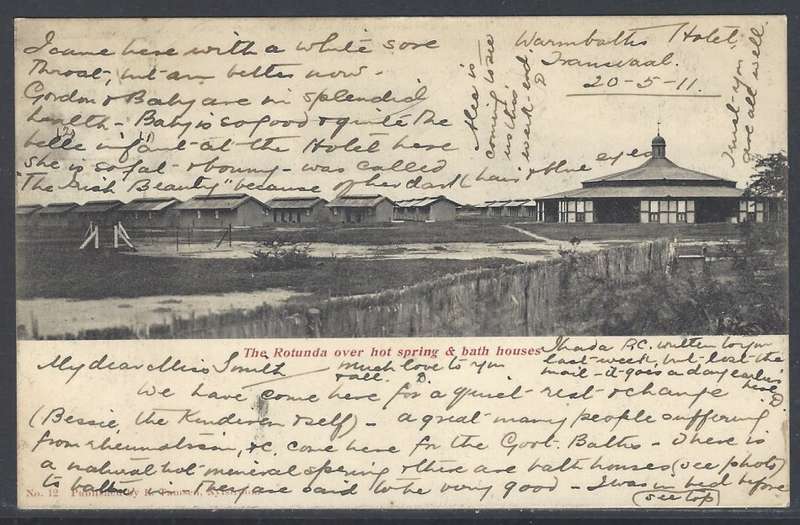 Warmbaths Hotel,
Transvaal.
20-5-11.
My dear Miss Smith
We have come here for a quiet rest & change
(Bessie, the Kinderen & self) - a great many people suffering
from rheumatism, &c. come here for the Govt. Baths - There is
a natural hot mineral spring & there are bath houses (see photo)
to bathe in. They are said to be very good - I was in bed before
(see top)
I came here with a white sore
throat, but am better now -
Gordon & Baby are in splendid
health - Baby is so good & quite the
belle infant at the Hotel here
she is so fat & bonny - was called
"The Irish Beauty" because of her dark hair & blue eyes
Alice is
coming to see
us this
week-end
D
I trust you
are all well.
The Rotunda over hot spring & bath houses
much love to you
& all. D.
I had a P.C. written to you
last week, but lost the
mail - it goes a day earlier
here. D.
No. 12 Published by